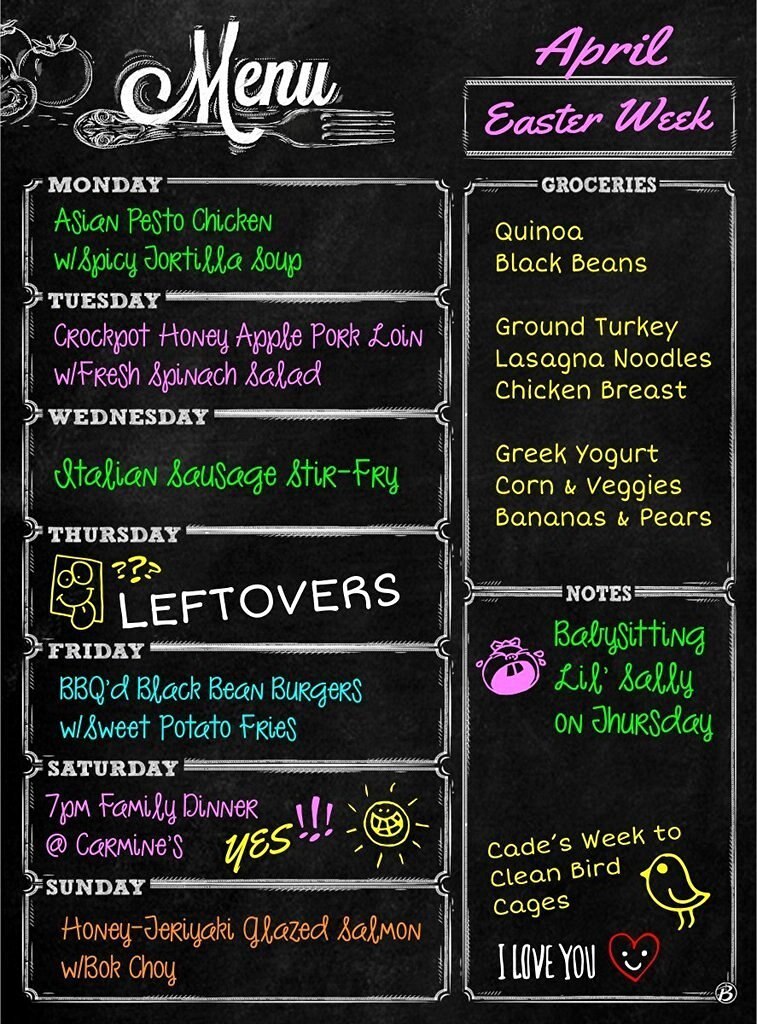 Menu
April
Easter Week
MONDAY
Asian Pesto Chicken
w/Spicy Tortilla Soup
TUESDAY
Crockpot Honey Apple Pork Loin
w/Fresh Spinach Salad
WEDNESDAY
Italian Sausage Stir-Fry
THURSDAY
???
LEFTOVERS
FRIDAY
BBQ'd Black Bean Burgers
w/Sweet Potato Fries
SATURDAY
7pm Family Dinner
@ Carmine's
YES!!!
SUNDAY
Honey-Teriyaki Glazed Salmon
w/Bok Choy
GROCERIES
Quinoa
Black Beans
Ground Turkey
Lasagna Noodles
Chicken Breast
Greek Yogurt
Corn & Veggies
Bananas & Pears
NOTES
Babysitting
Lil' Sally
on Thursday
Cade's Week to
Clean Bird
Cages
I LOVE YOU
B